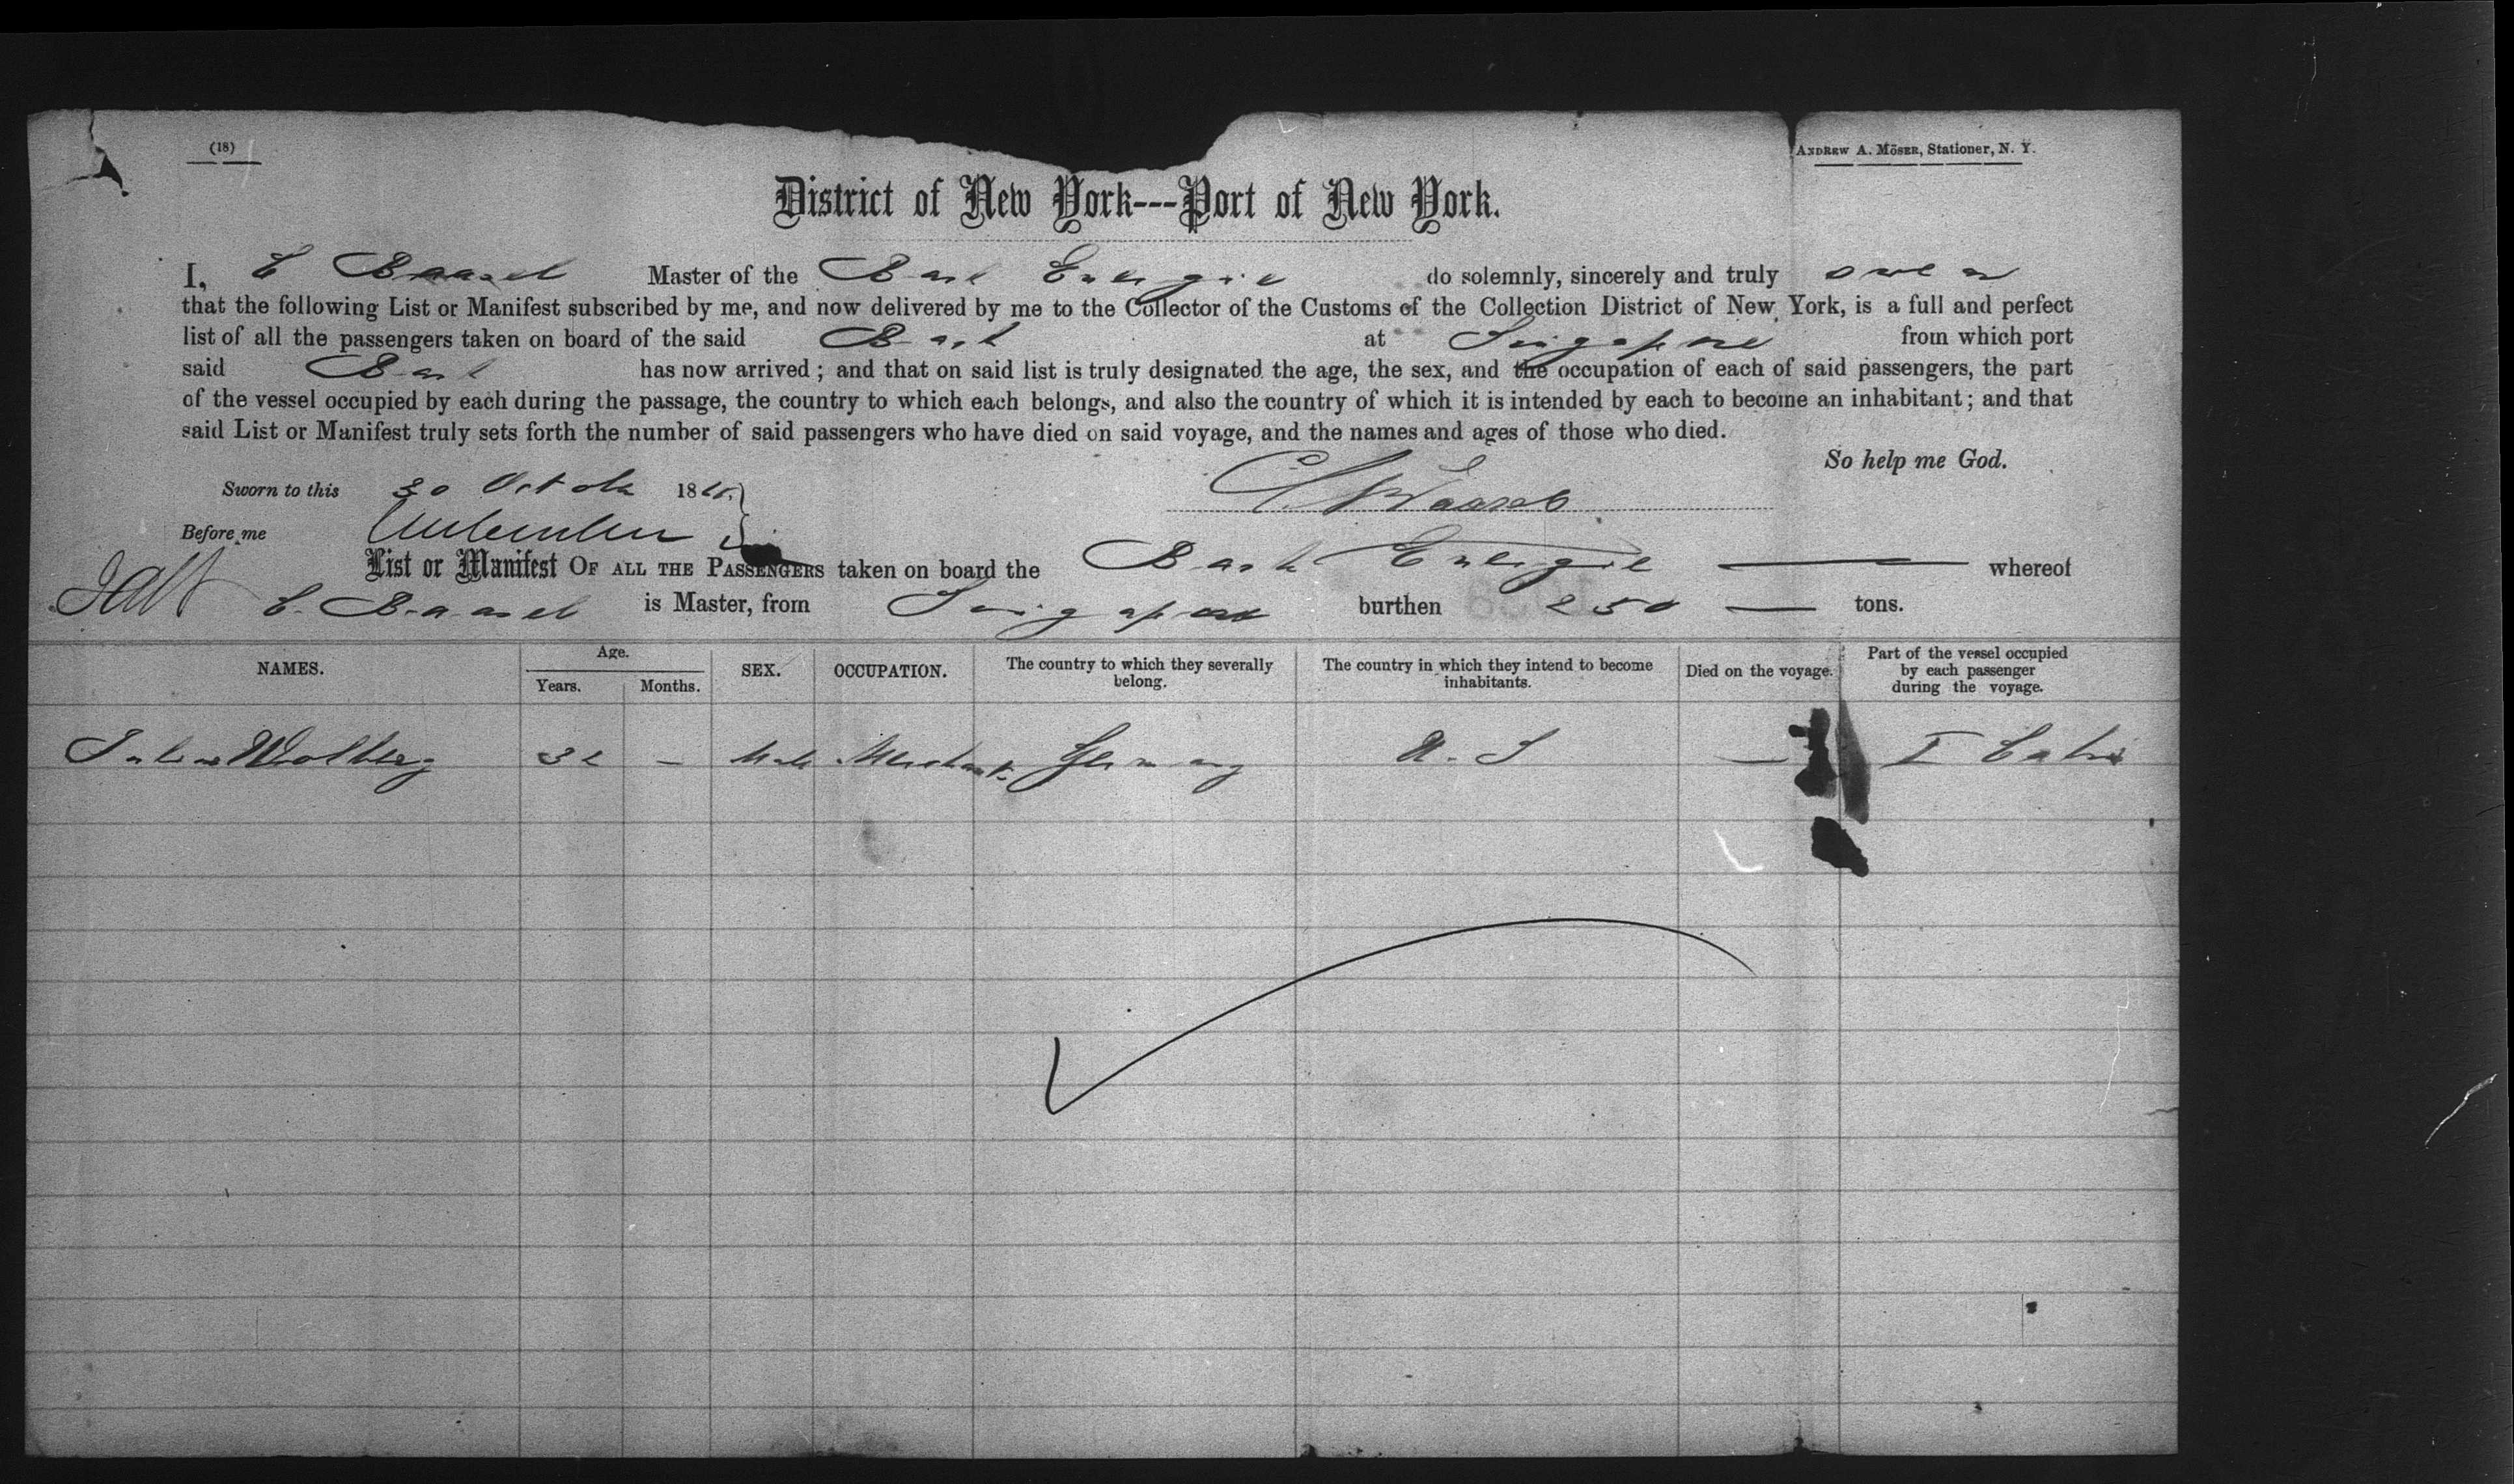 (18)
ANDREW A. MÖSER, Stationer, N. Y.
District of New York---Port of New York.
I, C Baasch Master of the Bark Energie do solemnly, sincerely and truly swear
that the following List or Manifest subscribed by me, and now delivered by me to the Collector of the Customs of the Collection District of New York, is a full and perfect
list of all the passengers taken on board of the said Bark at Singapore from which port
said Bark has now arrived; and that on said list is truly designated the age, the sex, and the occupation of each of said passengers, the part
of the vessel occupied by each during the passage, the country to which each belongs, and also the country of which it is intended by each to become an inhabitant; and that
said List or Manifest truly sets forth the number of said passengers who have died on said voyage, and the names and ages of those who died.
So help me God.
Sworn to this 30 October 186
Before me
List or Manifest OF ALL THE PASSENGERS taken on board the Bark Energie — whereof
C. Baasch is Master, from Singapore burthen 250 — tons.
NAMES. Age. Years. Months. SEX. OCCUPATION. The country to which they severally belong. The country in which they intend to become inhabitants. Died on the voyage. Part of the vessel occupied by each passenger during the voyage.
Julius Wolberg 32 — Male Merchant Germany U. S — I Cabin